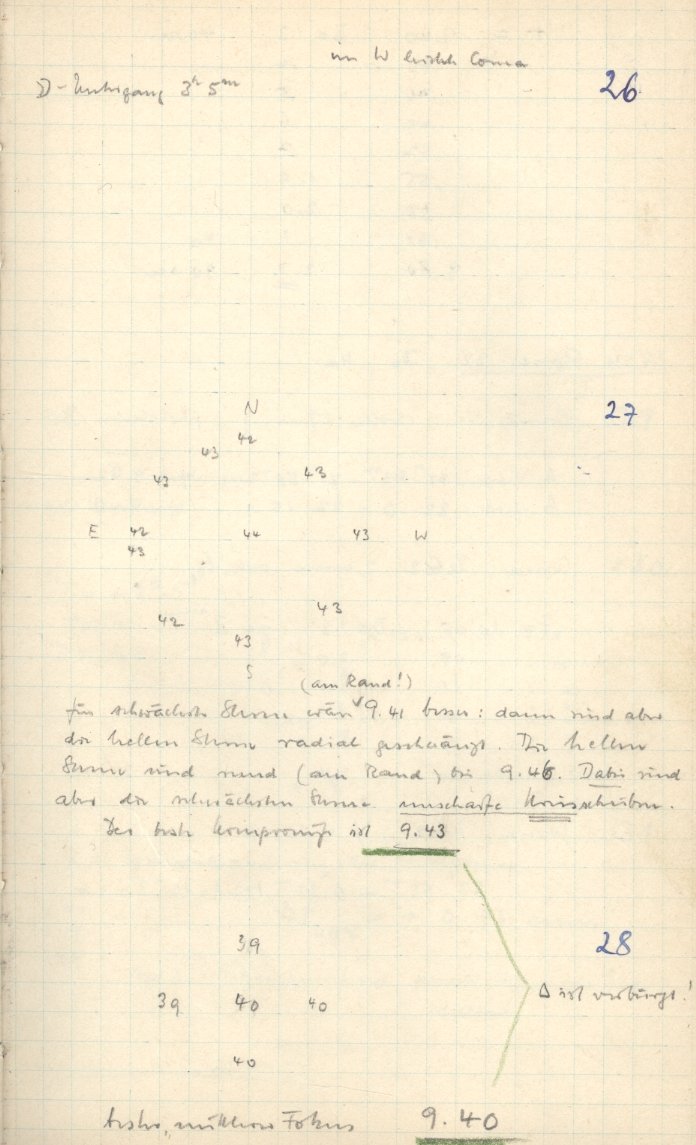 im W leicht Coma
☽-Untergang 3ʰ 5ᵐ 26
N 27
42
43
43 43
E 42 44 43 W
43
42 43
43
S
(am Rand!)
Für schwächste Sterne wäre 9.41 besser: dann sind aber
die hellen Sterne radial geschwänzt. Die hellen
Sterne sind rund (am Rand) bei 9.46. Dabei sind
aber die schwächsten Sterne unscharfe Kreisscheiben.
Der beste Kompromiß ist 9.43
39 28
39 40 40 Δ ist verbürgt!
40
bester, mittlerer Fokus 9.40